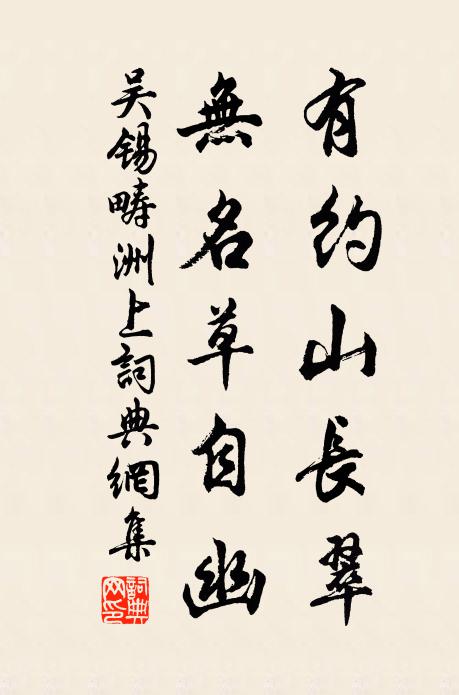 有約山長翠
無名草自幽
吴錫疇洲上詞典網集
詞典网印